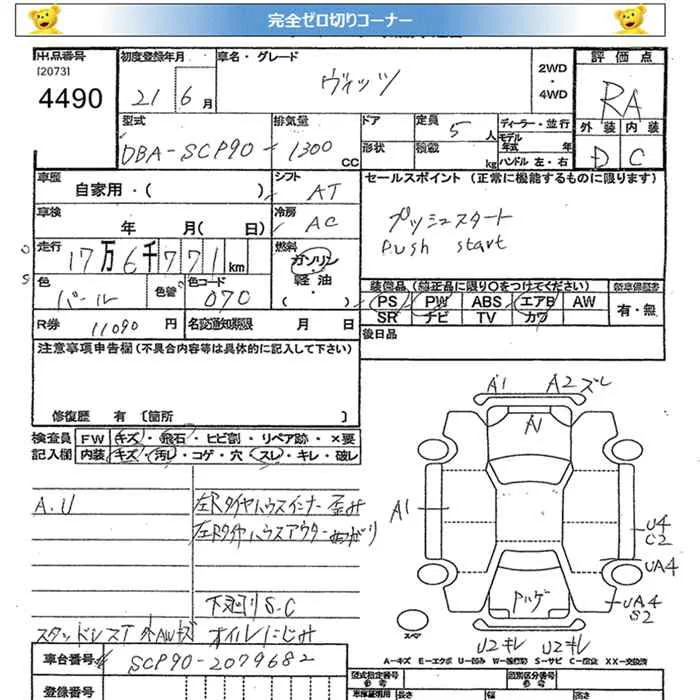 完全ゼロ切りコーナー
出品番号 初度登録年月 車名・グレード 評価点
[2073] ヴィッツ 2WD
・
4WD
4490 21 6月 RA
型式 排気量 ドア 定員 5人 ディーラー・並行 外装 内装
DBA-SCP90- 1300cc 形状 積載 kg モデル年式 年 D C
ハンドル 左・右
車歴 自家用・( ) シフト AT セールスポイント (正常に機能するものに限ります)
車検 年 月( 日) 冷房 AC プッシュスタート
Push start
走行 17万6千771km 燃料 ガソリン・軽油・( )
色 パール 色替 色コード 070 装備品 (純正品に限り○をつけてください) 新車保証書
PS PW ABS エアB AW 有・無
SR ナビ TV カワ
R券 11090円 名変通知期限 月 日 後日品
注意事項申告欄(不具合内容等は具体的に記入して下さい)
修復歴 有 [箇所 ]
検査員 FW キズ・飛石・ヒビ割・リペア跡・×要
記入欄 内装 キズ・汚レ・コゲ・穴・スレ・キレ・破レ
A1 A2ズレ
A1
A.U 左Rタイヤハウスインナー歪み
左Rタイヤハウスアウター
A1
U4
C2
UA4
UA4
S2
下廻り S.C
スタッドレス 外AWキズ オイルにじみ
スペア
U2キレ U2キレ
A-キズ E-エクボ U-凹み W-補修跡 S-サビ C-腐食 XX-交換済
車台番号 SCP90-2079682 型式指定番号 類別区分番号
登録番号 長さ 幅 高さ